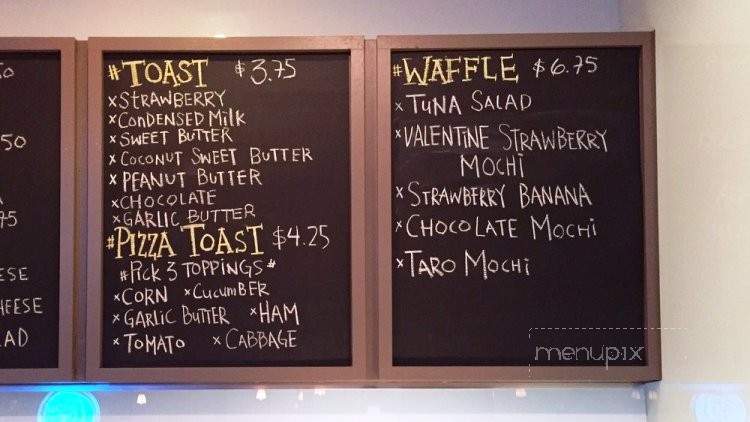 50
75
ESE
HEESE
AD
#TOAST $3.75
xSTRAWBERRY
xCONDENSED MiLK
xSWEET BUTTER
xCOCONUT SWEET BUTTER
xPEANUT BUTTER
xCHOCOLATE
xGARLIC BUTTER
#PIZZA TOAST $4.25
#PiCK 3 TOPPiNGS#
xCORN xCUCUMBER
xGARLIC BUTTER xHAM
xTOMATO xCABBAGE
#WAFFLE $6.75
xTUNA SALAD
xVALENTINE STRAWBERRY
MOCHI
xSTRAWBERRY BANANA
xCHOCOLATE MOCHi
xTARO MOCHi
menupix